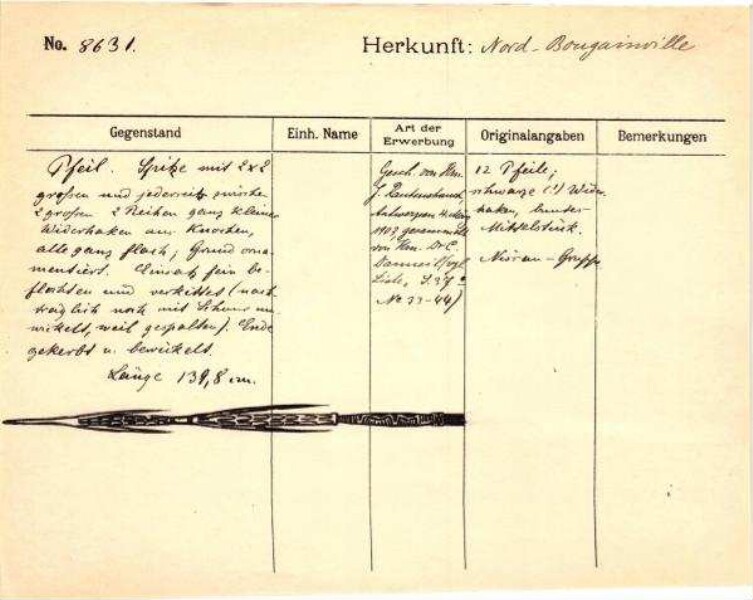 No. 8631.
Herkunft: Nord-Bougainville
Gegenstand
Einh. Name
Art der Erwerbung
Originalangaben
Bemerkungen
Pfeil. Spitze mit 2x2
großen und jederseits zwischen
2 großen 2 Reihen ganz kleine
Widerhaken aus Knochen,
alle ganz flach; Grund orna-
mentiert. Einsatz fein be-
flochten und verkittet (nach-
träglich noch mit Schnur um-
wickelt, weil gespalten). Ende
gekerbt u. bewickelt.
Länge 139,8 cm.
Gesch. von Hrn.
J. Rautenstrauch,
Antwerpen
von Hrn. Dr. C.
Liste, S. 37
No 33-44)
12 Pfeile,
schwarze (!) Wider-
haken, buntes
Mittelstück.
Nissan-Gruppe